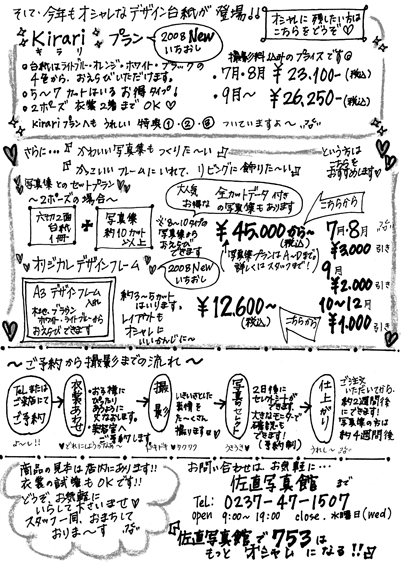 そして、今年もオシャレなデザイン台紙が登場♪♪
オシャレに残したい方は
こちらをどうぞ♡
☆Kirari☆プラン
キラリ
2008 New
いちおし
・台紙はライトブルー・オレンジ・ホワイト・ブラックの
4色から、おえらびいただけます。
・5〜7カットはいるお得タイプ♪
・2ポーズ 衣裳2着までOK♡
撮影料込みのプライスです
・7月・8月 ¥23,100-(税込)
・9月〜 ¥26,250-(税込)
Kirariプランへも うれしい 特典①・②・③ ついていますよ〜
さらに… かわいい写真集もつくりた〜い
かっこいいフレームにいれて、リビングに飾りた〜い♪
という方は
こちらを
おすすめします♡
♡写真集とのセットプラン♡
〜2ポーズの場合〜
六切2面
台紙
1冊
+
写真集
約10カット
以上
大人気
お得な
全カットデータ付き
の写真集もあります
※8〜10タイプの
写真集から
おえらび
できます
¥45,000から〜
(税込)
※写真集プランはA〜Dまで。
詳しくはスタッフまで!
こちらから
7月・8月
¥3,000引き
9月
¥2,000引き
10〜12月
¥1,000引き
♡オリジナルデザインフレーム
2008 New
いちおし
A3デザインフレーム
入れ
木地・ブラウン
ホワイト・ライトブルーから
おえらびできます
約3〜5カット
はいります。
レイアウトも
オシャレに
いいかんじに〜
¥12,600〜
(税込)
こちらから
〜ご予約から撮影までの流れ〜
TELまたは
ご来店にて
ご予約
よ〜し!!
衣裳あわせ
・お子様に
ぴったり
あうように
丈なおし
します。
・美容室へ
ご予約します
♡どれにしようかな〜♡
撮影
いきいきとした
表情を
た〜くさん
撮ります♡
♡ドキドキ♡ワクワク
写真セレクト
2日後に
セレクトシートが
できます。
大きなモニターで
確認も
できます。
(予約制)
うきうき♡
仕上がり
ご注文
いただいてから、
約2週間後
にできます!
写真集の方は
約4週間後
うれし〜
商品の見本は店内にあります!!
衣裳の試着もOKです!!
どうぞ、お気軽に
いらして下さいませ♡
スタッフ一同、おまちして
おりま〜す
お問い合わせは、お気軽に…
佐直写真館まで
Tel: 0237-47-1507
open 9:00〜19:00 close. 水曜日(wed)
佐直写真館で753は
もっと オシャレになる!!